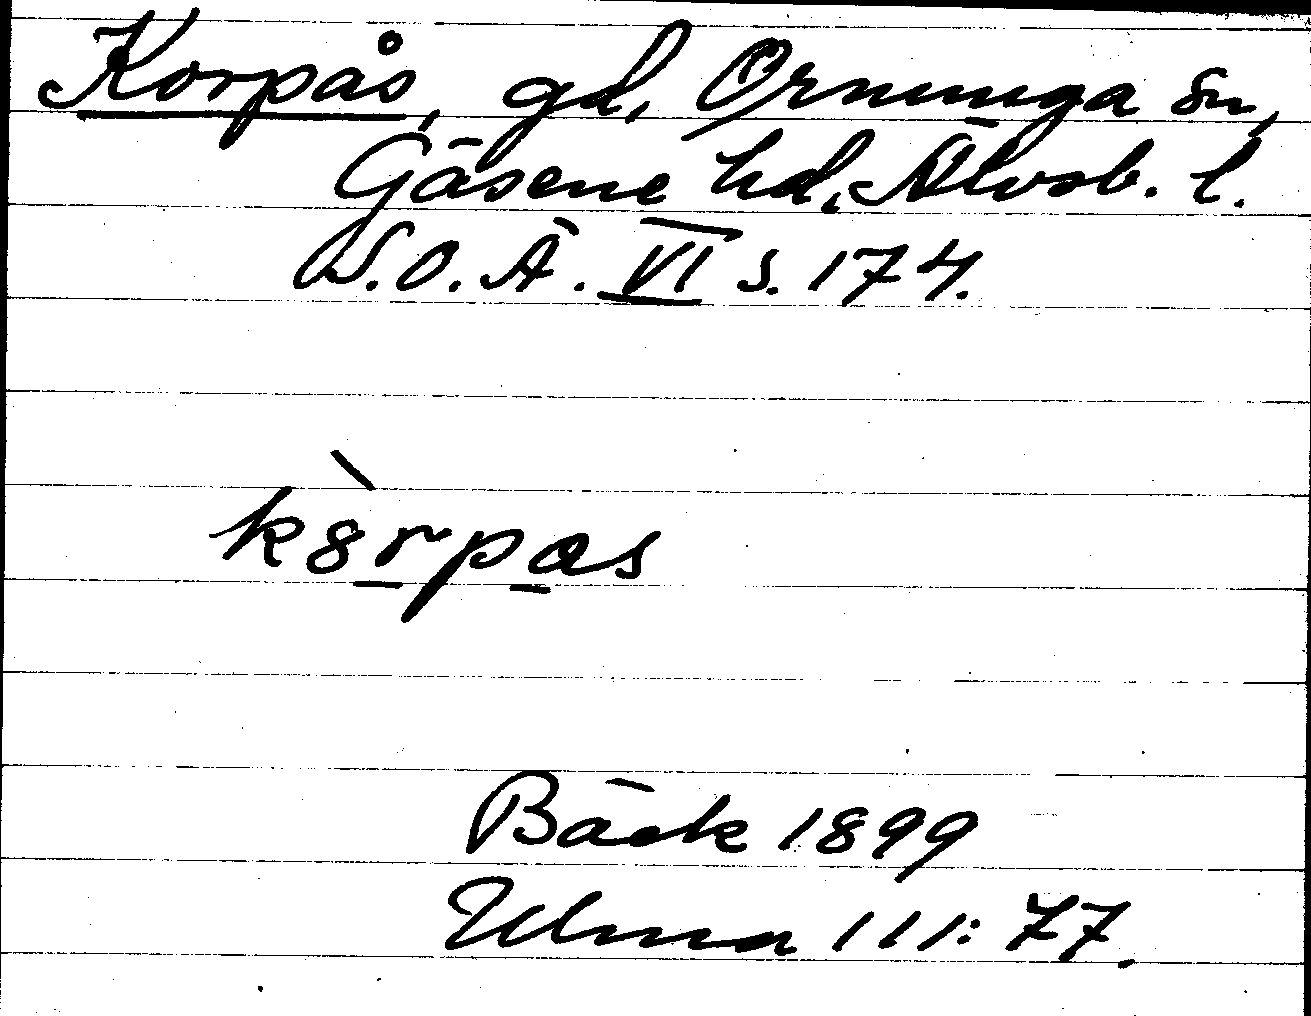 Korpås, gd, Ornunga sn,
Gäsene hd, Älvsb. l.
S.O.Ä. VI s. 174.
kȣ̀rpas
Bäck 1899
Ulma 111:77.